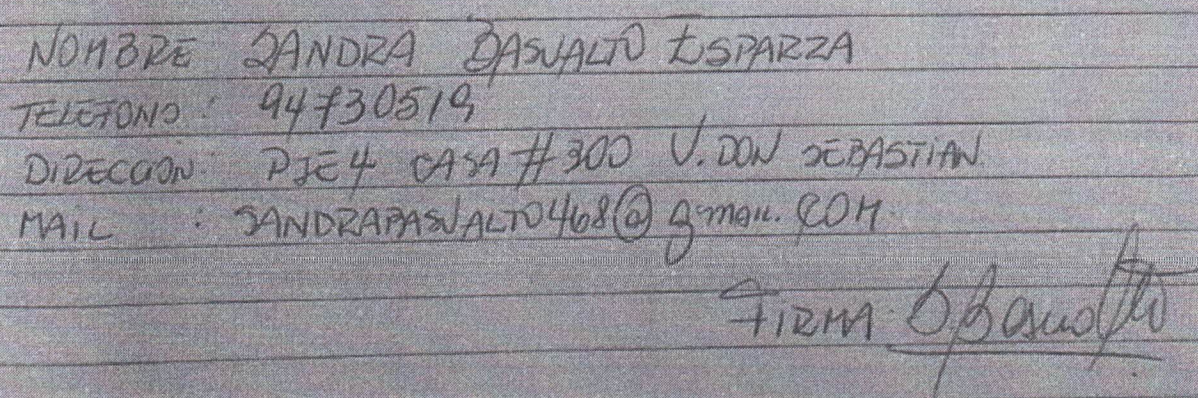 NOMBRE SANDRA BASUALTO ESPARZA
TELEFONO: 94730519
DIRECCION: PJE 4 CASA #300 V. DON SEBASTIAN.
MAIL : SANDRABASUALTO468@gmail.COM
FIRMA: S. Basualto